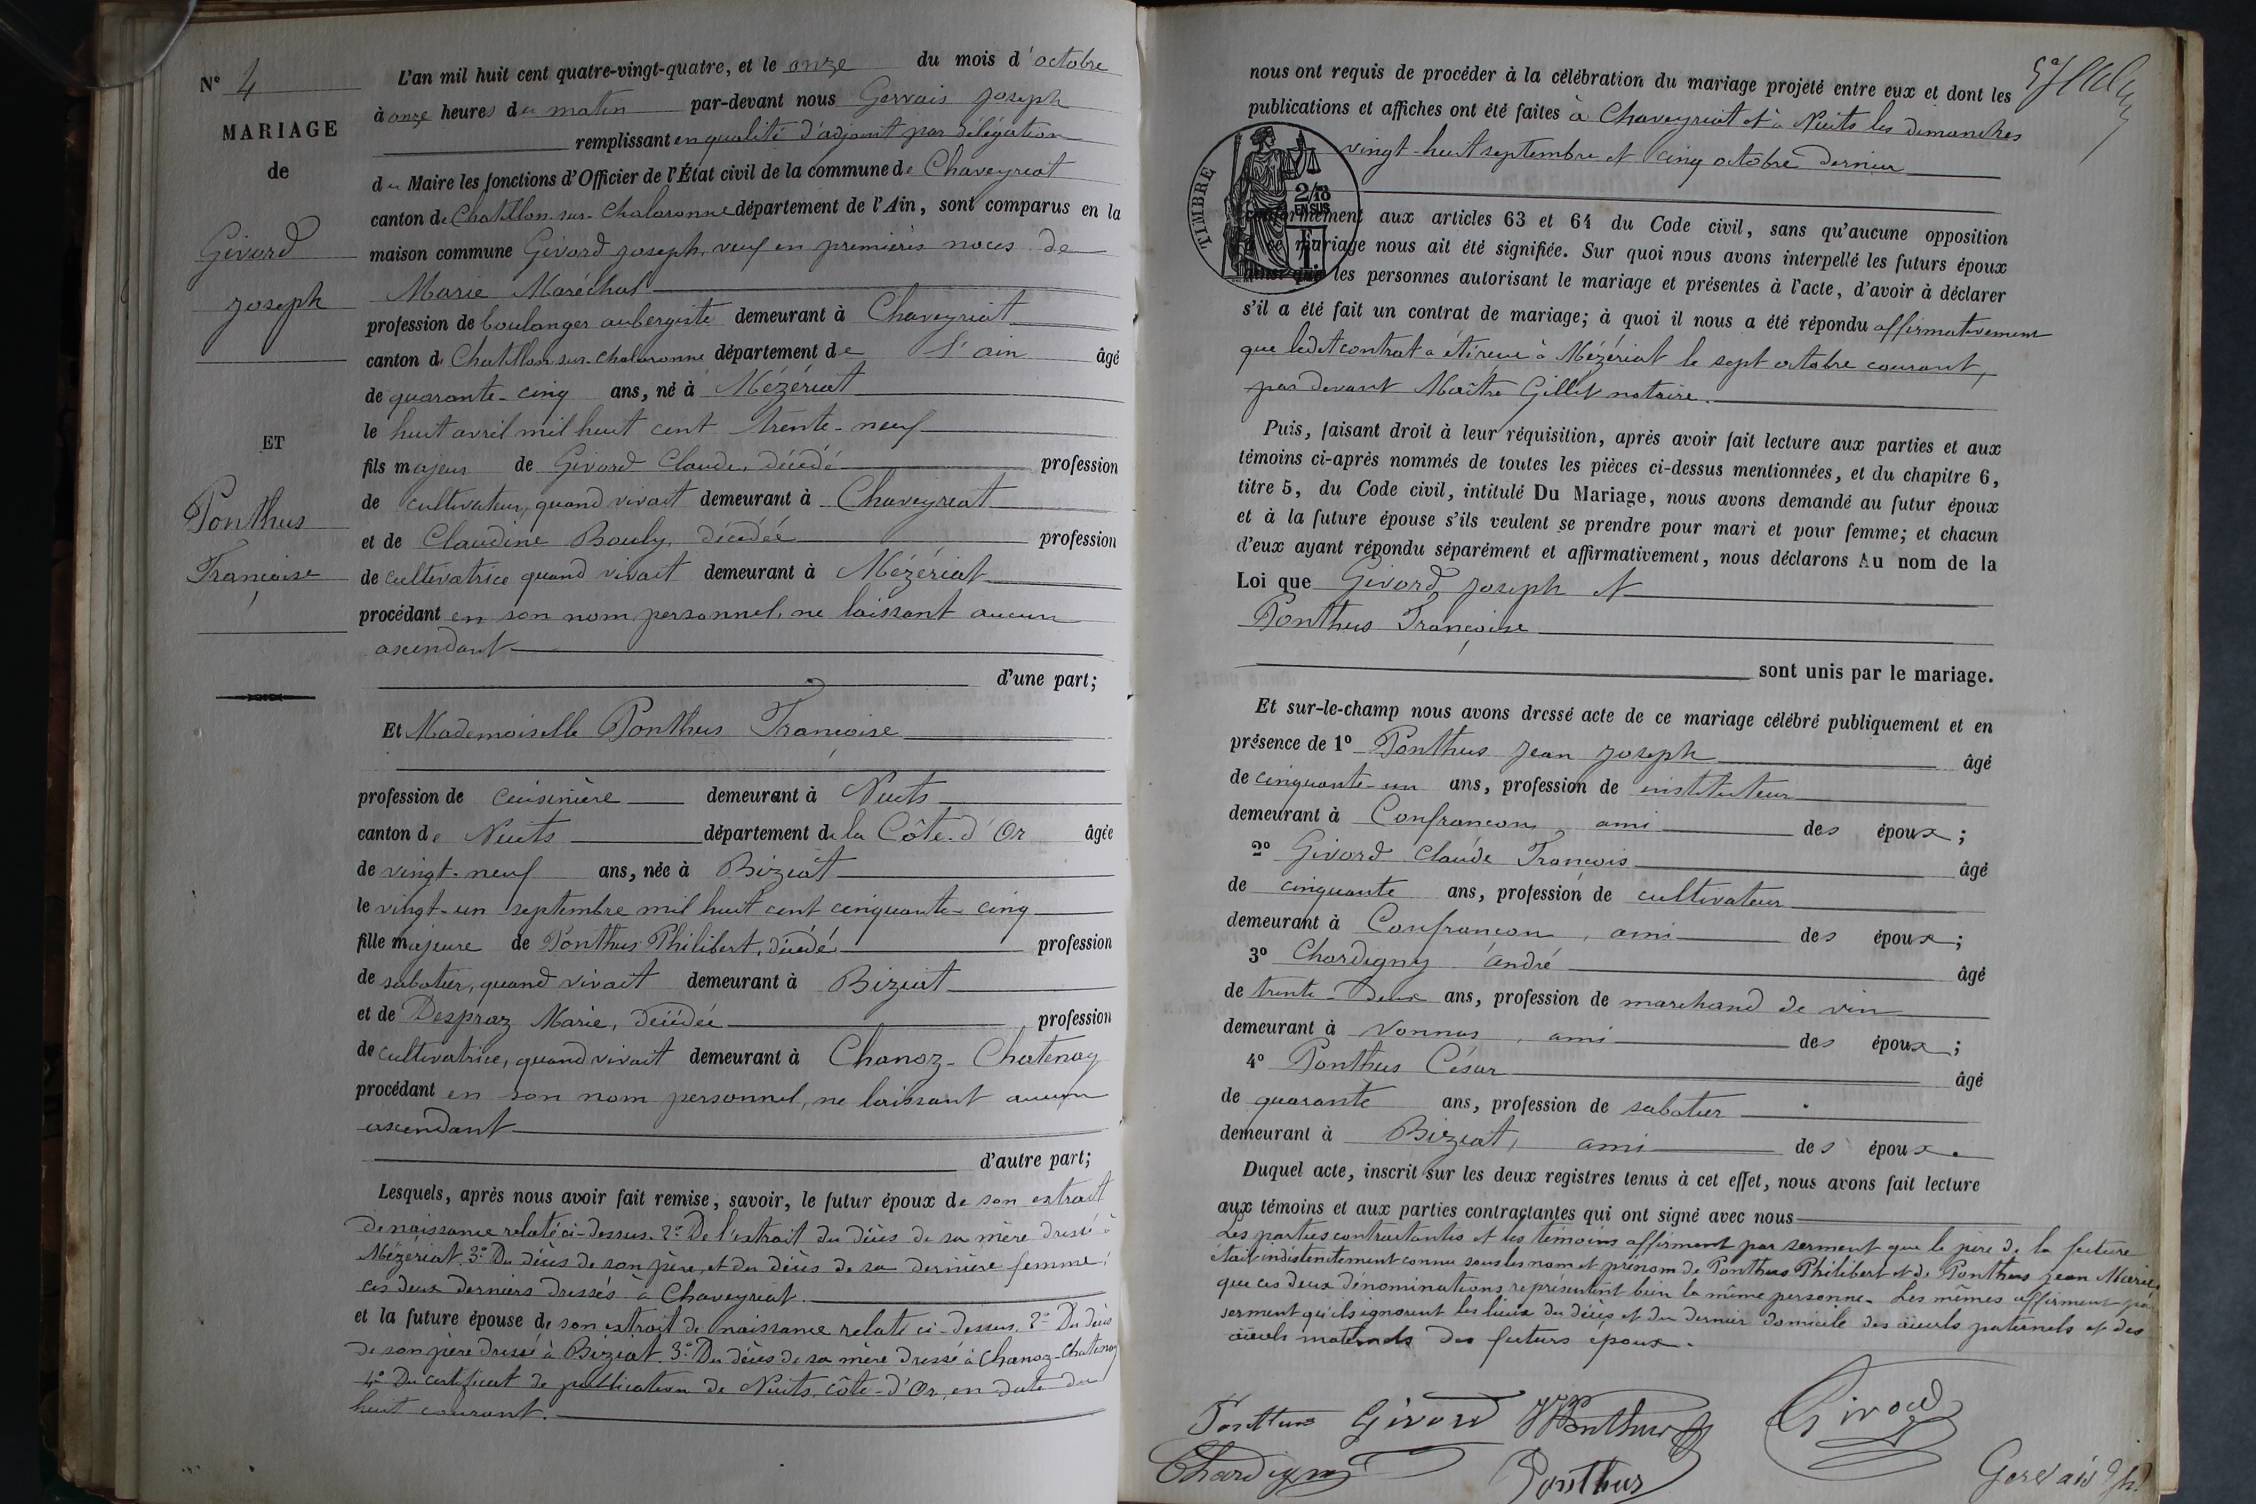 N° 4
MARIAGE
de
Givord
Joseph
ET
Ponthus
Françoise
L'an mil huit cent quatre-vingt-quatre, et le onze du mois d'octobre
à onze heures du matin par-devant nous Gervais Joseph
remplissant en qualité d'adjoint par délégation
du Maire les fonctions d'Officier de l'État civil de la commune de Chaveyriat
canton de Chatillon-sur-Chalaronne département de l'Ain, sont comparus en la
maison commune Givord Joseph, veuf en premières noces de
Marie Maréchal
profession de boulanger aubergiste demeurant à Chaveyriat
canton de Chatillon-sur-Chalaronne département de l'ain âgé
de quarante-cinq ans, né à Mézériat
le huit avril mil huit cent trente-neuf
fils majeur de Givord Claude, décédé profession
de cultivateur, quand vivait demeurant à Chaveyriat
et de Claudine Bouly, décédée profession
de cultivatrice quand vivait demeurant à Mézériat
procédant en son nom personnel, ne laissant aucun
ascendant
d'une part;
Et Mademoiselle Ponthus Françoise
profession de cuisinière demeurant à Nuits
canton de Nuits département de la Côte-d'Or âgée
de vingt-neuf ans, née à Biziat
le vingt-un septembre mil huit cent cinquante-cinq
fille majeure de Ponthus Philibert, décédé profession
de sabotier, quand vivait demeurant à Biziat
et de Despraz Marie, décédée profession
de cultivatrice, quand vivait demeurant à Chanoz-Chatenay
procédant en son nom personnel, ne laissant aucun
ascendant
d'autre part;
Lesquels, après nous avoir fait remise, savoir, le futur époux de son extrait
de naissance relaté ci-dessus. 2° De l'extrait du décès de sa mère dressé à
Mézériat. 3° Du décès de son père, et du décès de sa dernière femme,
ces deux derniers dressés à Chaveyriat.
et la future épouse de son extrait de naissance relaté ci-dessus. 2° Du décès
de son père dressé à Biziat. 3° Du décès de sa mère dressé à Chanoz-Chatenay
4° Du certificat de publication de Nuits, côte-d'Or, en date du
huit courant.
nous ont requis de procéder à la célébration du mariage projeté entre eux et dont les
publications et affiches ont été faites à Chaveyriat et à Nuits les dimanches
vingt-huit septembre et cinq octobre dernier
TIMBRE
2/10
EN SUS
1 F.
conformément aux articles 63 et 64 du Code civil, sans qu'aucune opposition
à ce mariage nous ait été signifiée. Sur quoi nous avons interpellé les futurs époux
ainsi que les personnes autorisant le mariage et présentes à l'acte, d'avoir à déclarer
s'il a été fait un contrat de mariage; à quoi il nous a été répondu affirmativement
que ledit contrat a été reçu à Mézériat le sept octobre courant,
par devant Maître Gillet notaire.
Puis, faisant droit à leur réquisition, après avoir fait lecture aux parties et aux
témoins ci-après nommés de toutes les pièces ci-dessus mentionnées, et du chapitre 6,
titre 5, du Code civil, intitulé Du Mariage, nous avons demandé au futur époux
et à la future épouse s'ils veulent se prendre pour mari et pour femme; et chacun
d'eux ayant répondu séparément et affirmativement, nous déclarons Au nom de la
Loi que Givord Joseph et
Ponthus Françoise
sont unis par le mariage.
Et sur-le-champ nous avons dressé acte de ce mariage célébré publiquement et en
présence de 1° Ponthus Jean Joseph âgé
de cinquante-un ans, profession de instituteur
demeurant à Confrançon, ami des époux;
2° Givord Claude François âgé
de cinquante ans, profession de cultivateur
demeurant à Confrançon, ami des époux;
3° Chardigny André âgé
de trente-deux ans, profession de marchand de vin
demeurant à Vonnas, ami des époux;
4° Ponthus César âgé
de quarante ans, profession de sabotier
demeurant à Biziat, ami des époux.
Duquel acte, inscrit sur les deux registres tenus à cet effet, nous avons fait lecture
aux témoins et aux parties contractantes qui ont signé avec nous
Les parties contractantes et les témoins affirment par serment que le père de la future
était indistinctement connu sous les nom et prénom de Ponthus Philibert et de Ponthus Jean Marie
que ces deux dénominations représentent bien la même personne. Les mêmes affirment par
serment qu'ils ignorent les lieux du décès et du dernier domicile des aïeuls paternels et des
aïeuls maternels des futurs époux.
Ponthus Givord JJ Ponthus Givord
Chardigny Ponthus Gervais Jh